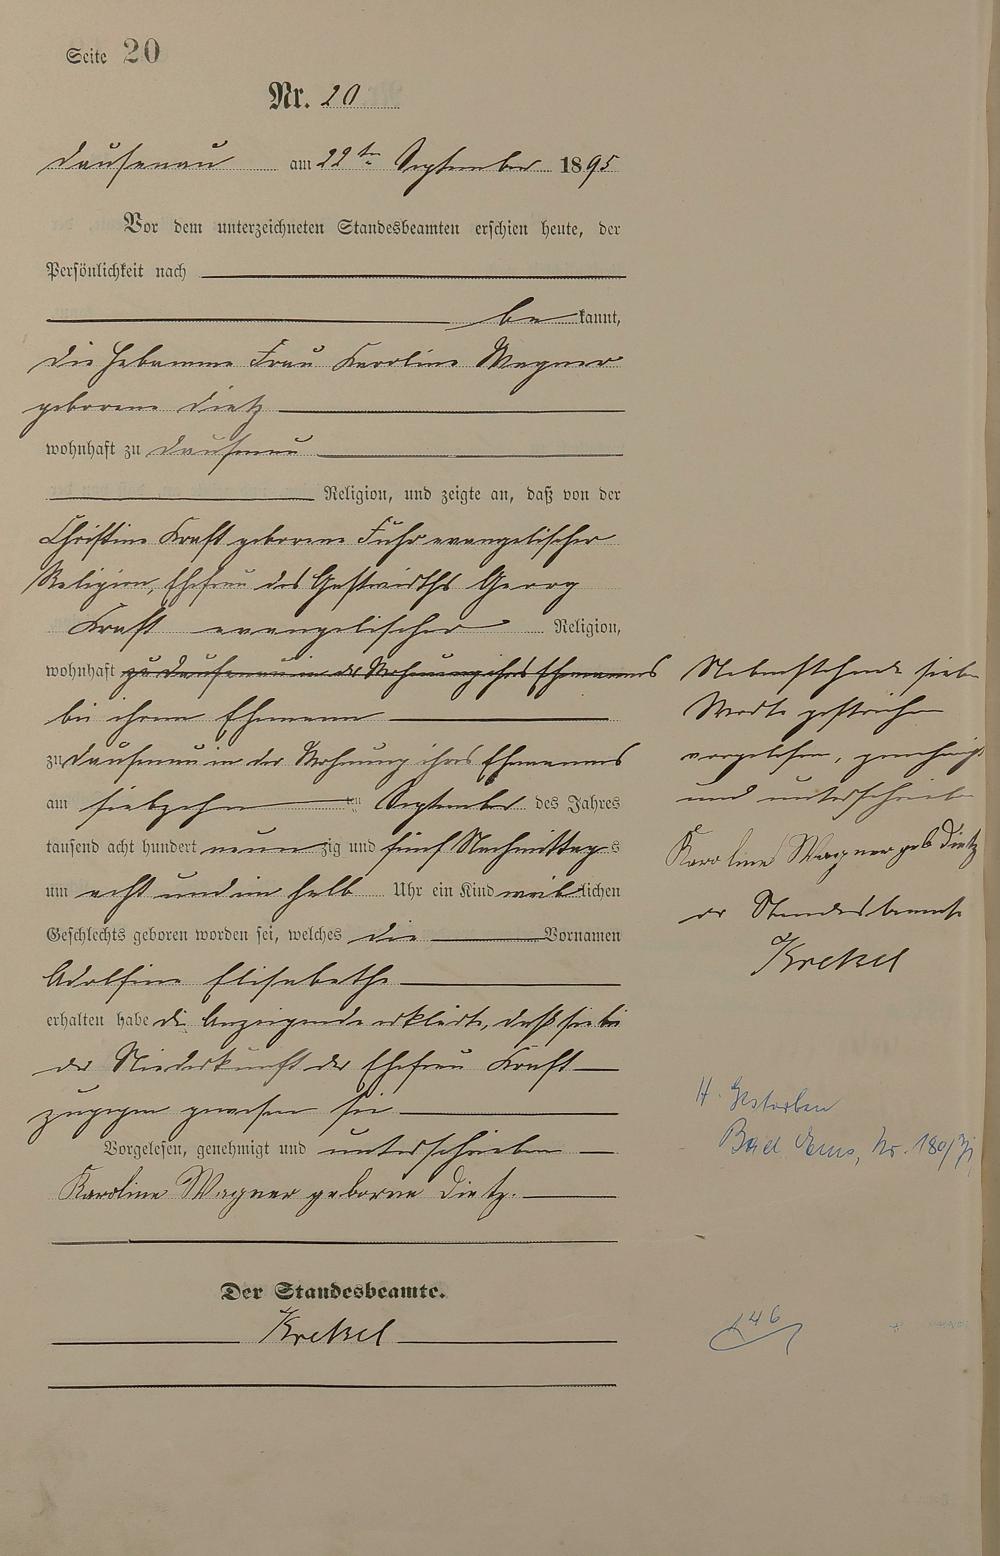 Seite 20
Nr. 20
Dausenau am 22ten September 1895
Vor dem unterzeichneten Standesbeamten erschien heute, der
Persönlichkeit nach
bekannt,
die Hebamme Frau Karoline Wagner
geborene Dietz
wohnhaft zu Dausenau
Religion, und zeigte an, daß von der
Christine Kraft geborene Fuhr evangelischer
Religion, Ehefrau des Gastwirths Georg
Kraft evangelischer Religion,
wohnhaft zu Dausenau in der Wohnung ihres Ehemannes
bei ihrem Ehemann
zu Dausenau in der Wohnung ihres Ehemannes
am siebzehn ten September des Jahres
tausend acht hundert neunzig und fünf Nachmittags
um acht und ein halb Uhr ein Kind weiblichen
Geschlechts geboren worden sei, welches die Vornamen
Adolfine Elisabethe
erhalten habe die Anzeigende erklärte, daß sie bei
der Niederkunft der Ehefrau Kraft
zugegen gewesen sei
Vorgelesen, genehmigt und unterschrieben
Karoline Wagner geborne Dietz.
Der Standesbeamte.
Krekel
Nebenstehende sieben
Worte gestrichen
vorgelesen, genehmigt
und unterschrieben
Karoline Wagner geb Dietz
der Standesbeamte
Krekel
H. Gestorben
Bad Ems, Nr. 180/
146